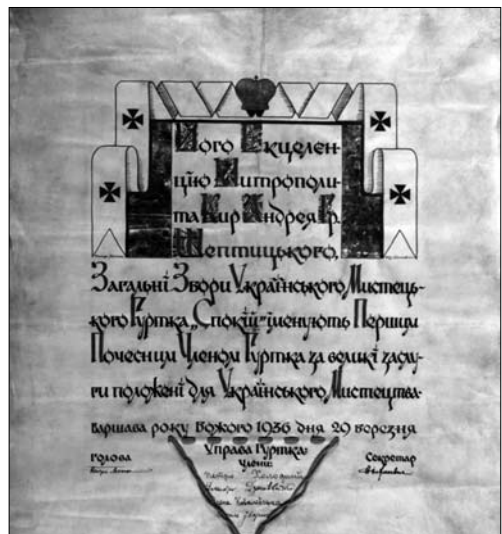 Його Екцелен-
цію Митрополи-
та Кир Андрея Гр.
Шептицького,
Загальні Збори Українського Мистець-
кого Гуртка „Спокій“ іменують Першим
Почесним Членом Гуртка за великі заслу-
ги положені для Українського Мистецтва.
Варшава року Божого 1936 дня 29 березня
Управа Гуртка:
Голова
Члени:
Секретар
Петро Холодний